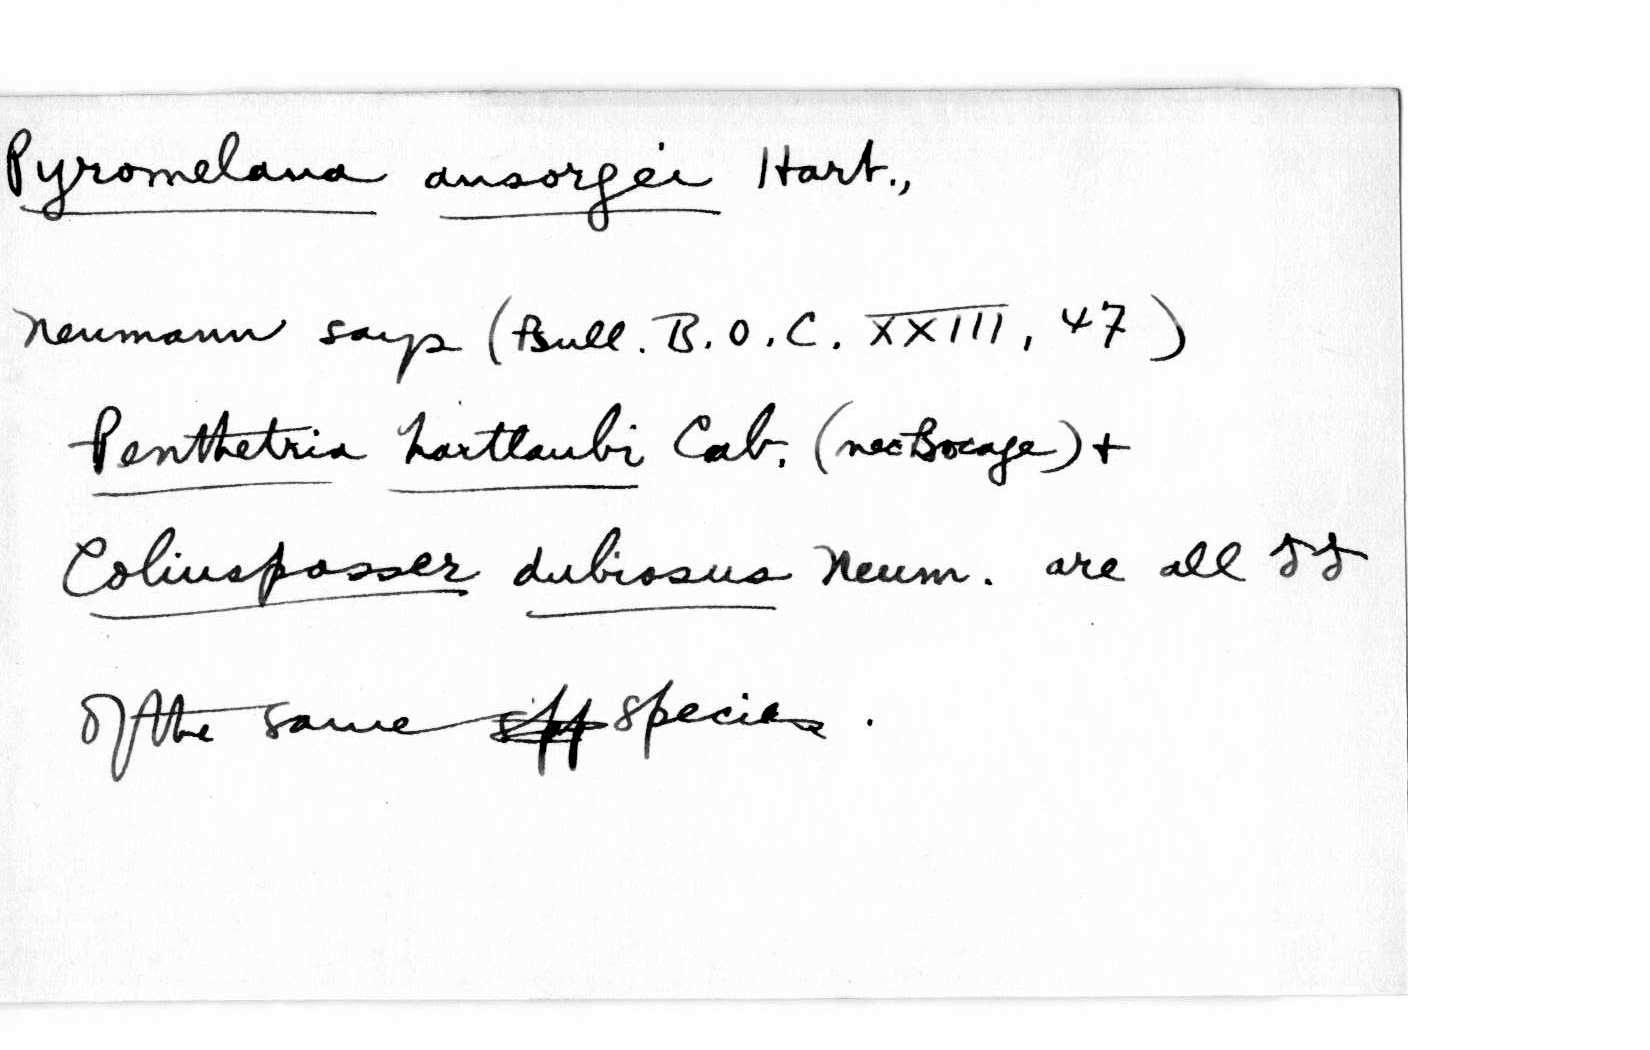 Pyromelana ansorgei Hart.,
Neumann says (Bull. B.O.C. XXIII, 47)
Penthetria hartlaubi Cab. (nec Bocage) +
Coliuspasser dubiosus Neum. are all
of the same species.